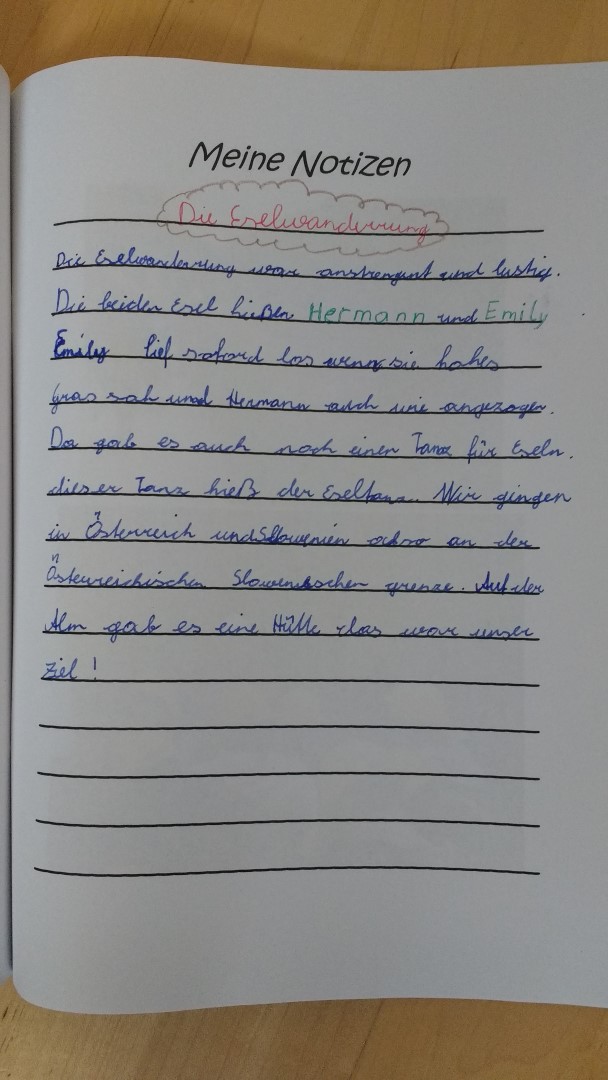 Meine Notizen
Die Eselwanderung
Die Eselwanderung war anstrengent und lustig.
Die beiden Esel hießen Hermann und Emily
Emily lief soford los wenn sie hohes
gras sah und Hermann auch wie angezogen.
Da gab es auch noch einen Tanz für Eseln.
dieser Tanz hieß der Eseltanz. Wir gingen
in Österreich und Slowenien also an der
Östereichischen Slowenischen grenze. Auf der
Alm gab es eine Hütte das war unser
Ziel!